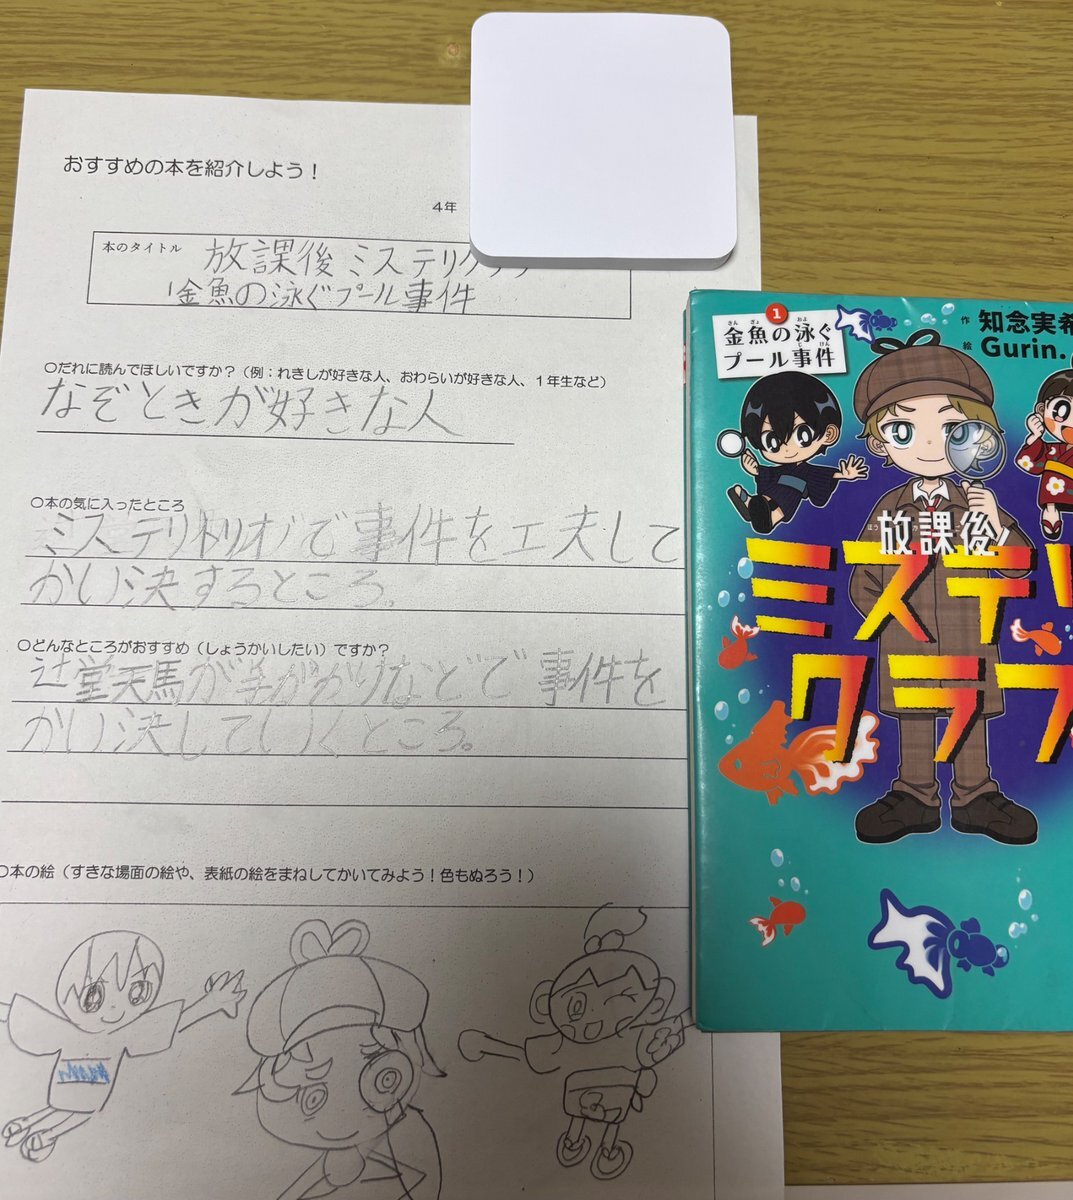 おすすめの本を紹介しよう！
4年
本のタイトル 放課後ミステリクラブ
1金魚の泳ぐプール事件
○だれに読んでほしいですか？（例：れきしが好きな人、おわらいが好きな人、１年生など）
なぞときが好きな人
○本の気に入ったところ
ミステリトリオで事件を工夫して
かい決するところ。
○どんなところがおすすめ（しょうかいしたい）ですか？
辻堂天馬が手がかりなどで事件を
かい決していくところ。
○本の絵（すきな場面の絵や、表紙の絵をまねしてかいてみよう！色もぬろう！）
1
きんぎょ およ
金魚の泳ぐ
じけん
プール事件
作 知念実希
絵 Gurin.
放課後
ミステリ
クラブ